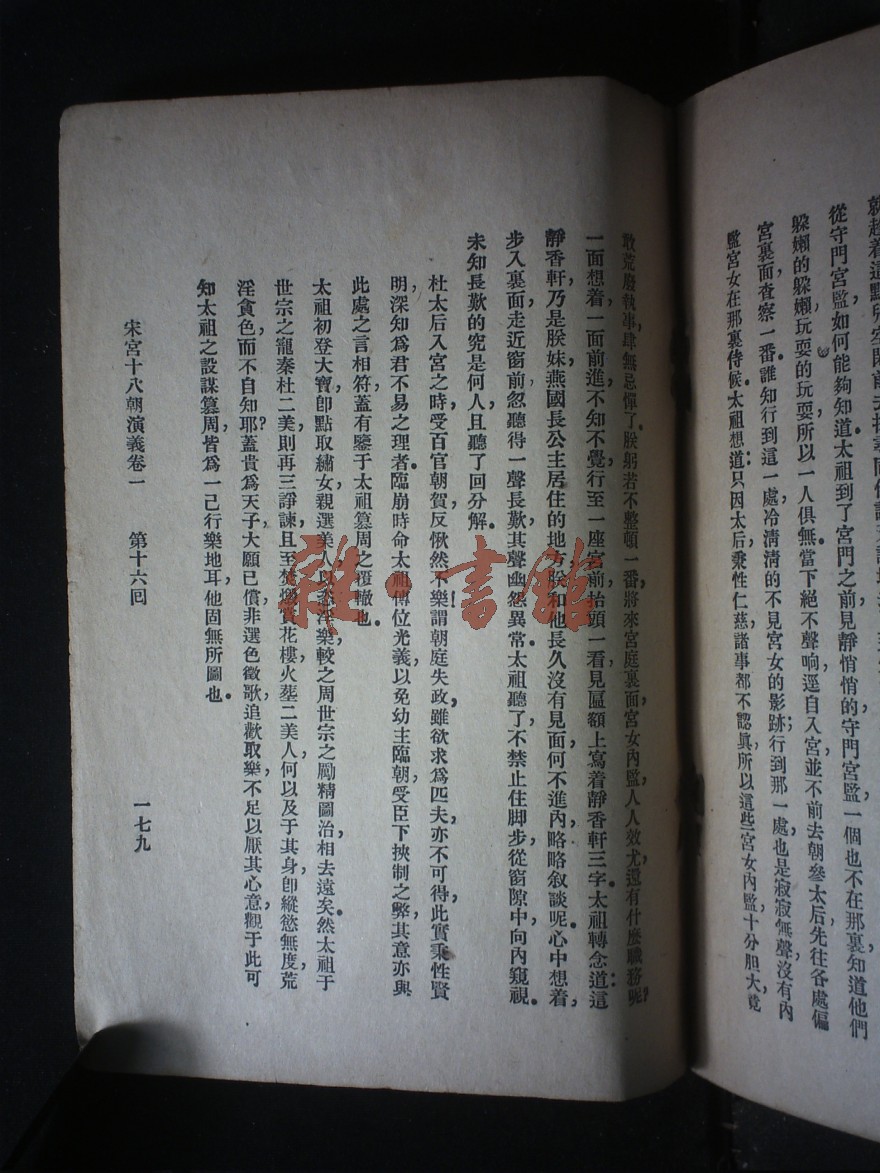 從守門宮監如何能夠知道太祖到了宮門之前見靜悄悄的守門宮監一個也不在那裏知道他們
躲嬾的躲嬾玩耍的玩耍所以一人俱無當下絕不聲响逕自入宮並不前去朝參太后先往各處偏
宮裏面查察一番誰知行到這一處冷清清的不見宮女的影跡行到那一處也是寂寂無聲沒有內
監宮女在那裏侍候。太祖想道:只因太后秉性仁慈諸事都不認真所以這些宮女內監十分胆大竟
敢荒廢執事肆無忌憚了。朕躬若不整頓一番將來宮庭裏面宮女內監人人效尤還有什麼職務呢?
一面想着一面前進不知不覺行至一座宮前抬頭一看見匾額上寫着靜香軒三字。太祖轉念道:這
靜香軒乃是朕妹燕國長公主居住的地方朕和他長久沒有見面何不進內略略敘談呢。心中想着,
步入裏面走近窗前忽聽得一聲長歎其聲幽怨異常太祖聽了不禁止住脚步從窗隙中向內窺視。
未知長歎的究是何人且聽了回分解。
杜太后入宮之時受百官朝賀反愀然不樂謂朝庭失政雖欲求爲匹夫亦不可得,此實秉性賢
明,深知爲君不易之理者。臨崩時命太祖傳位光義以免幼主臨朝受臣下挾制之弊其意亦與
此處之言相符蓋有鑒于太祖篡周之覆轍也。
太祖初登大寶卽點取繡女親選美人以恣淫樂較之周世宗之勵精圖治,相去遠矣。然太祖于
世宗之寵秦杜二美,則再三諍諫,且至焚燬賞花樓,火塟二美人何以及于其身卽縱慾無度荒
淫貪色,而不自知耶?蓋貴爲天子大願已償,非選色徵歌追歡取樂,不足以厭其心意,觀于此可
知太祖之設謀篡周,皆爲一己行樂地耳,他固無所圖也。
宋宮十八朝演義卷一　第十六回　一七九
雜·書館